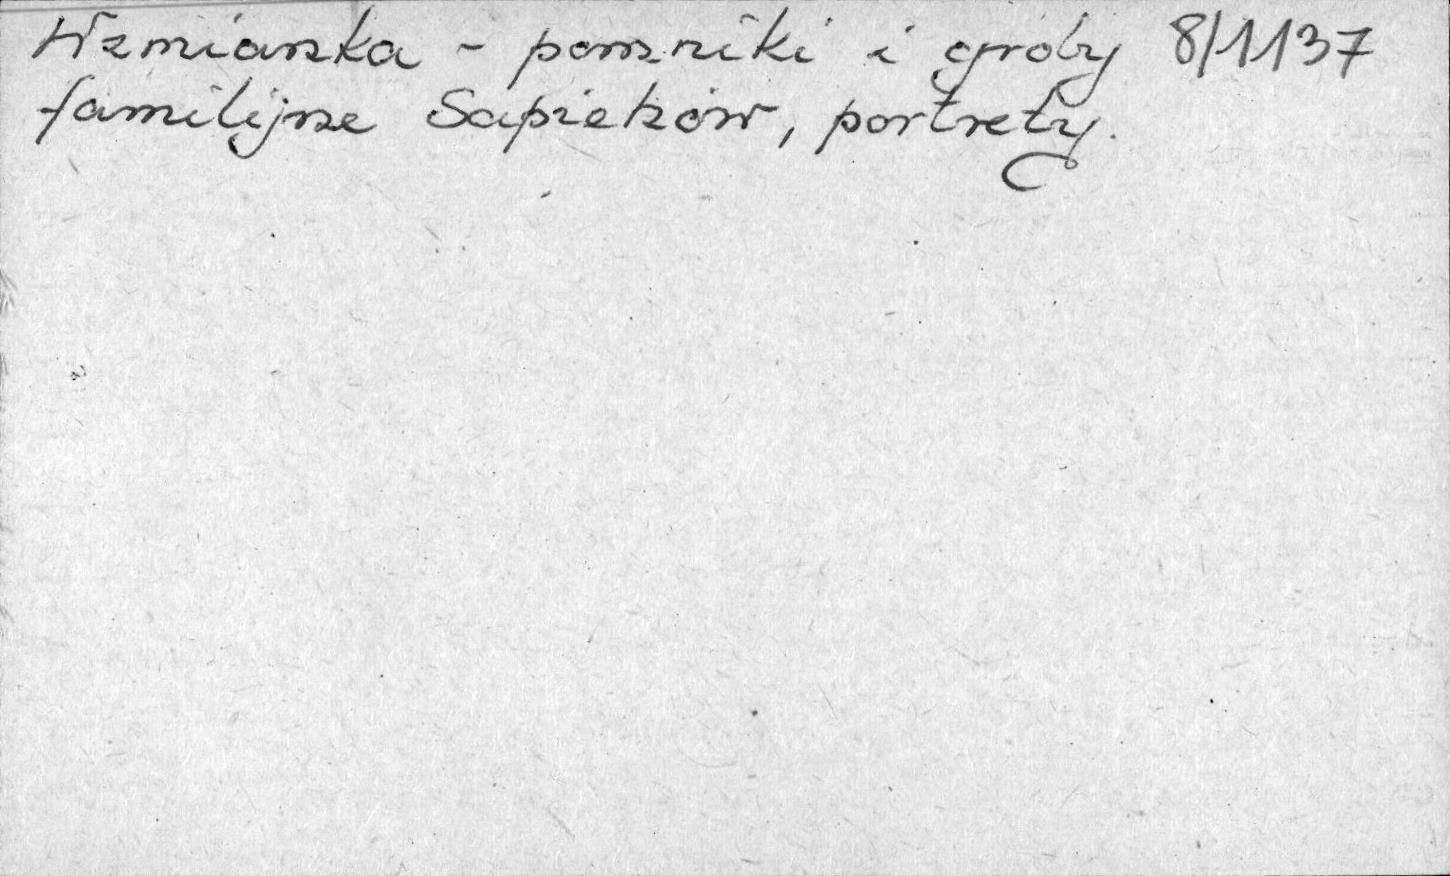 Wzmianka - pomniki i groby 8/1137
familijne Sapiehów, portrety.